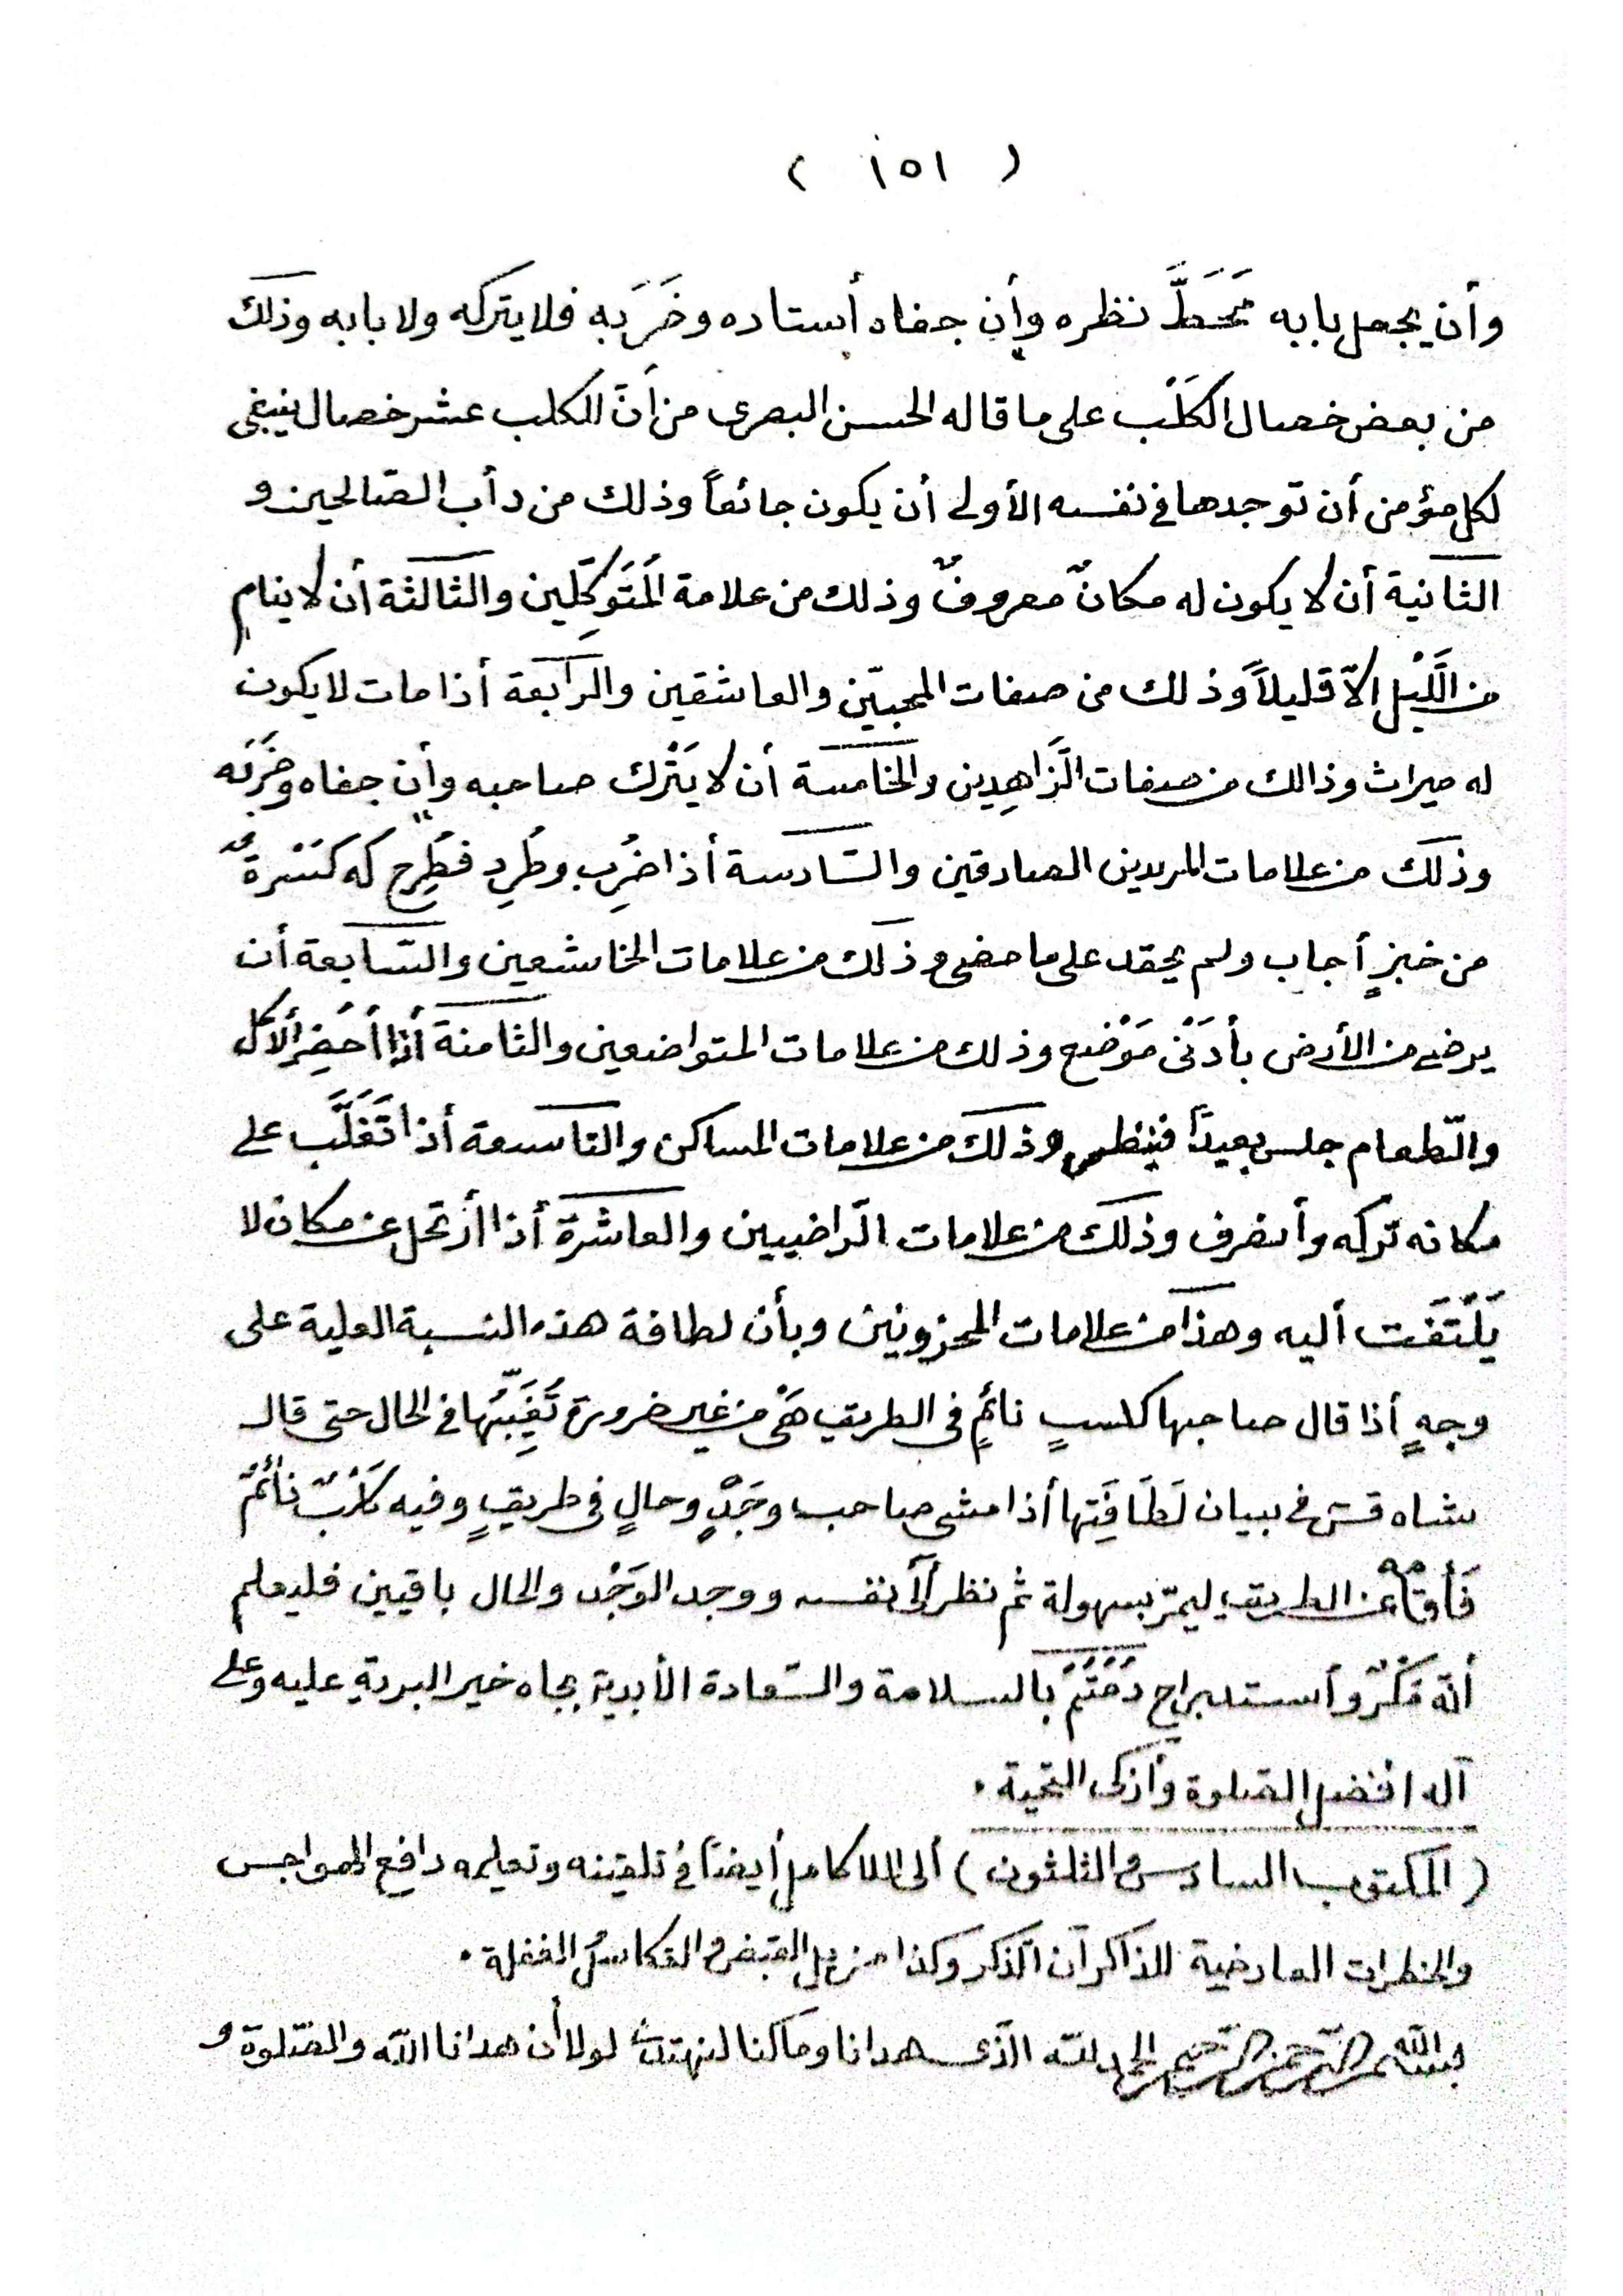 ( ١٥١ )
وأن يجعل بابه مَحَطَّ نظره وأن جفاه أستاده وضَرَبه فلا يتركه ولا بابه وذلك
من بعض خصال الكَلْب على ما قاله الحسن البصرى من أنّ للكلب عشر خصال ينبغى
لكل مؤمن أن توجدها فى نفسه الأولى أن يكون جائعاً وذلك من دأب الصّالحين و
الثانية أن لا يكون له مكانٌ معروفٌ وذلك من علامة المُتَوَكِّلين والثالثة أن لا ينام
من اللَّيْل إلاّ قليلاً وذلك من صفات المحبيّن والعاشقين والرّابعة أذا مات لا يكون
له ميراث وذالك من صفات الزَّاهِدِين والخامسة أن لا يَتْرك صاحبه وأن جفاه وضَرَبَه
وذلك من علامات المريدين الصادقين والسّادسة أذا ضُرِب وطُرِد فطُرِح له كَسْرةٌ
من خبزٍ أجاب ولم يحقد على ما مضى وذلك من علامات الخاشعين والسّابعة أن
يرضى من الأرض بأدَنْى مَوْضع وذلك من علامات المتواضعين والثامنة أذا أُحضِر ألأكل
والطّعام جلس بعيداً فينظر وذلك من علامات المساكن والتاسعة أذا تَغَلَّب على
مكانه تركه وأنصرف وذلك من علامات الرّاضيين والعاشرة أذا أرتحل عن مكان لا
يَلْتَفت أليه وهذا من علامات المحزونين وبأن لطافة هذه النسبة العلية على
وجهٍ أذا قال صاحبها لكلبٍ نائمٍ فى الطريق هَىْ من غير ضرورة تَغِيبُها فى الحال حتى قال
شاه قش فى بيان لَطَافَتِها أذا مشى صاحب وَجْدٍ وحالٍ فى طريقٍ وفيه كَلْبٌ نائمٌ
فأقامه عن الطريق ليمرّ بسهولة ثم نظر ألى نفسه ووجد الوَجْد والحال باقيين فليعلم
أنّه مَكْرٌ وأستدراج دُمْتُمْ بالسلامة والسّعادة الأبدية بجاه خير البرية عليه وعلى
آله افضل الصّلوة وأزكى التحية ٠
( المكتوب السادس والثلثون ) ألى الملا كامل أيضاً فى تلقينه وتعليمه دافع الهواجس
والخطرات العارضية للذاكر آن الذكر وكذا مزيل القبض والتكاسل الغفلة ٠
بسم الله الرّحمن الرّحيم الحمد لله الّذى هدانا وما كنا لنهتدى لولا أن هدانا اللّه والصّلوة و